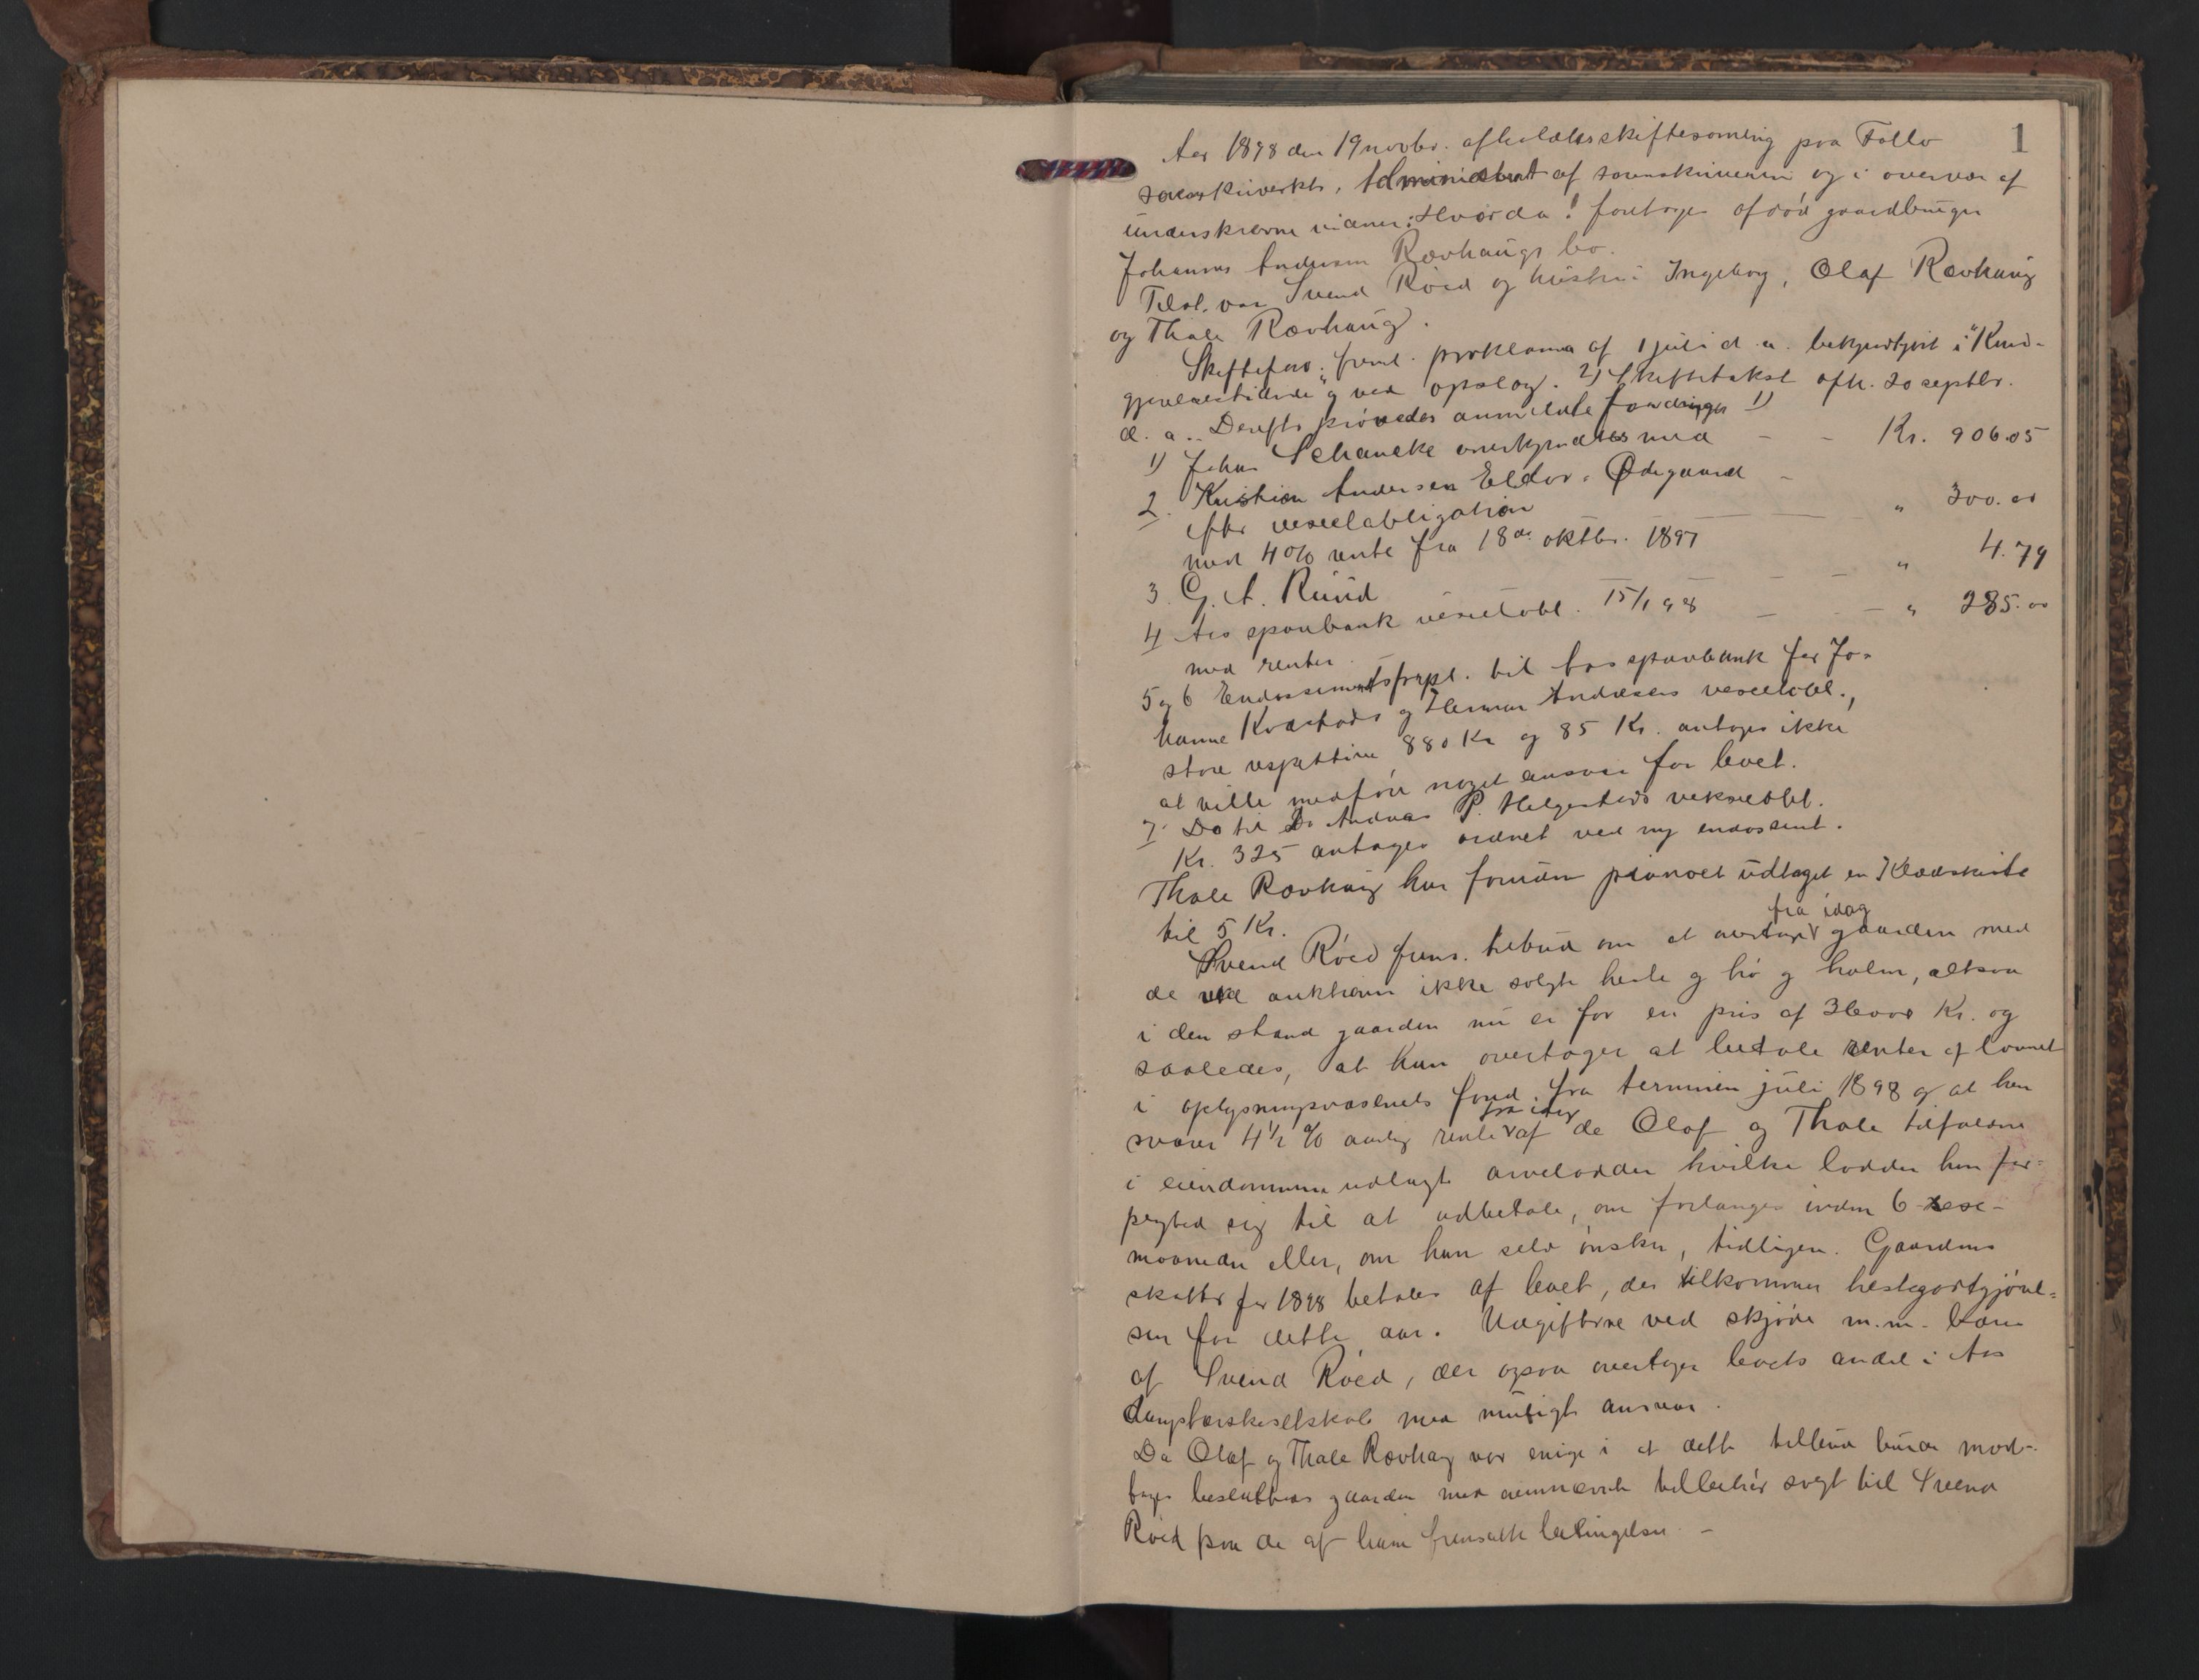 1
Aar 1898 den 19 novbr. afholdtes skiftesamling paa Follo
sorenskriverktr., Administrert af sorenskriveren og i overvær af
underskrevne vidner: Hvorda! foretages afdød gaardbruger
Johannes Andersen Rævhaugs bo.
Tilst. var Svend Röed og hustru Ingeborg, Olaf Rævhaug
og Thale Rævhaug.
Skiftefov. freml. proklama af 1 juli d. a. bekjendtgjort i "Kund-
gjørelsestidende" og ved opslag. 2) Skiftetakst afh. 20 septbr.
d. a.. Derefter prövedes anmeldte fordringer 1)
1) Johan Schancke anerkjendtes med - - Kr. 906.05
2. Kristian Andersen Eldor. Ødegaard -
efter vexelobligation - " 300.00
med 4 0/0 rente fra 18de oktbr. 1897
3. G. A. Ruud - - - " 4.79
4 Aas sparebank vexelobl. 15/1 98 - - - " 285.00
med renter.
5 og 6 Endossementsforpl. til Aas sparebank for Jo-
hanne Kvæstads og Herman Andersens vexelobl.,
store respektive 880 Kr og 85 Kr. antages ikke
at ville medföre noget ansvar for boet.
7. Do til Do Andreas P. Helgestads vekselobl.
Kr. 325 antages ordnet ved ny endossemt.
Thale Rævhaug har foruden pianoet udtaget en Klædskiste
til 5 Kr.
fra idag
Svend Röed frems. tilbud om at overtage gaarden med
de ved auktionen ikke solgte heste og hö og halm, altsaa
i den stand gaarden nu er for en pris af Kr. og
saaledes, at han overtager at betale renter af laanet
i oplysningsvæsenets fond fra terminen juli 1898 og at han
fra idag
svarer 4 1/2 % aarlig rente af de Olaf og Thale tilfaldne
i eiendommen udlagte arvelodder hvilke lodder han for-
pligted sig til at udbetale, om forlanges inden 6 -sex-
maaneder eller, om han selv önsker, tidligere. Gaardens
skatter for 1898 betales af boet, der tilkommer hestegodtgjörel-
sen for dette aar. Udgifterne ved skjöde m.m. bæres
af Svend Röed, der ogsaa overtager boets andel i Aas
damptærskeselskab med muligt ansvar.
Da Olaf og Thale Rævhaug var enige i at dette tilbud burde mod-
tages besluttedes gaarden med ovennævnte tilbehör solgt til Svend
Röed paa de af ham fremsatte betingelser. -